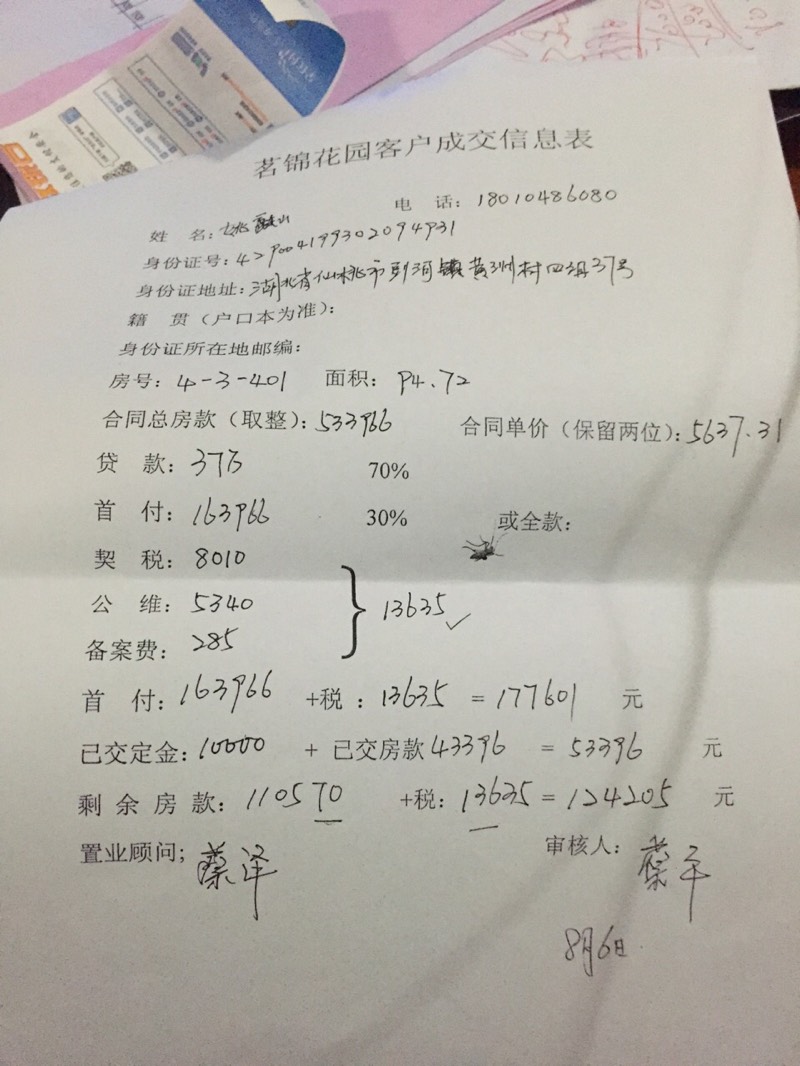 茗锦花园客户成交信息表
姓 名: 姚 山 电 话: 18010486080
身份证号: 429004199302094931
身份证地址: 湖北省仙桃市剅河镇黄洲村四组37号
籍 贯(户口本为准):
身份证所在地邮编:
房号: 4-3-401 面积: 94.72
合同总房款(取整): 533966 合同单价(保留两位): 5637.31
贷 款: 37万 70%
首 付: 163966 30% 或全款:
契 税: 8010
公 维: 5340 13635
备案费: 285
首 付: 163966 +税: 13635 = 177601 元
已交定金: 10000 + 已交房款 43396 = 53396 元
剩 余 房 款: 110570 +税: 13635 = 124205 元
置业顾问; 蔡泽 审核人: 蔡
8月6日